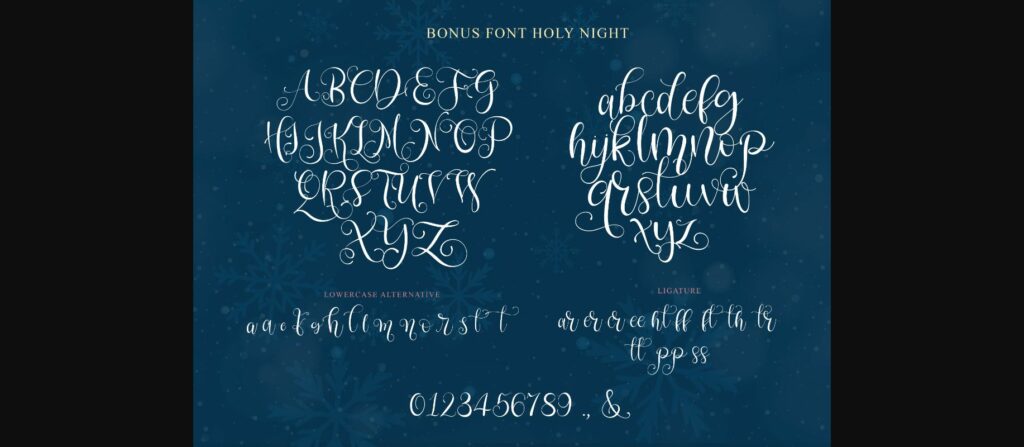 BONUS FONT HOLY NIGHT
ABCDEFG
HIJKLMNOP
QRSTUVW
XYZ
abcdefg
hijklmnop
qrstuvw
xyz
LOWERCASE ALTERNATIVE
LIGATURE
ar er or ee ht ff fl th tr
tt pp ss
0123456789 ., &